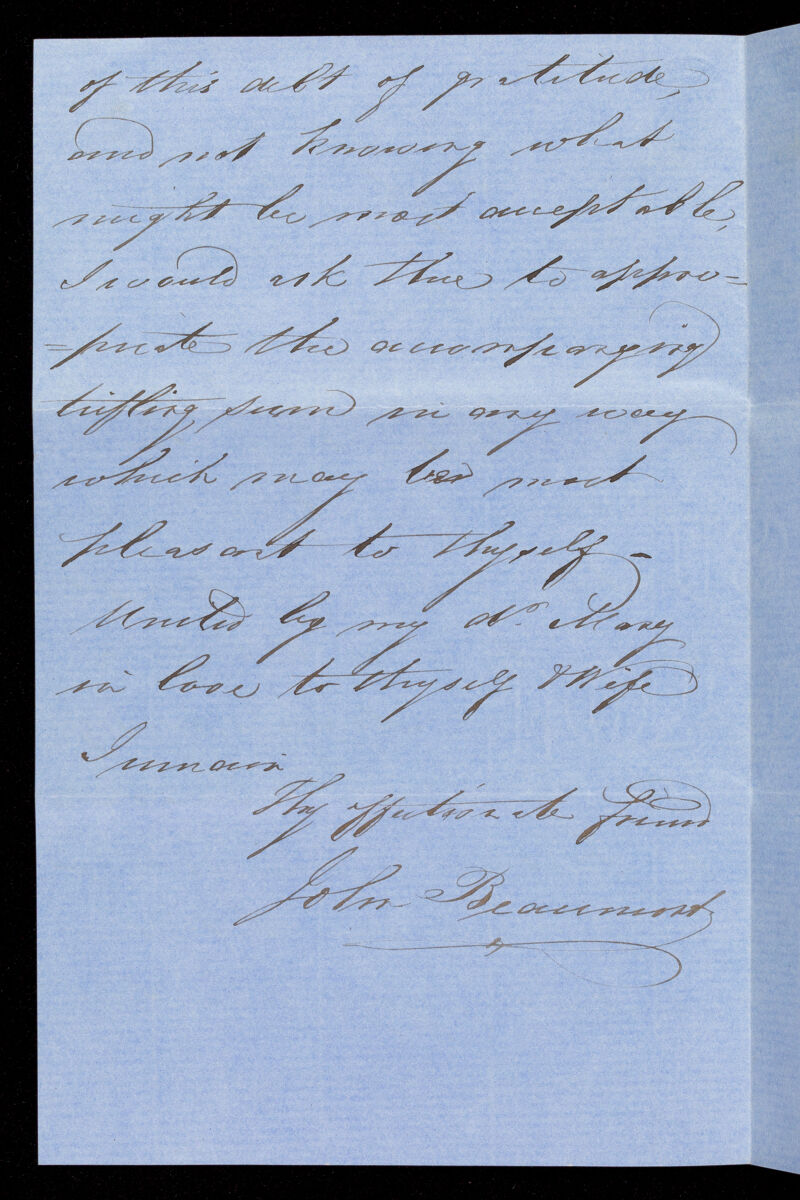 of this debt of gratitude,
and not knowing what
might be most acceptable,
I would ask thee to appro=
=priate the accompanying
trifling sum in any way
which may be most
pleasant to thyself –
United by my dr. Mary
in love to thyself & Wife
I remain
Thy affectionate friend
John Beaumont